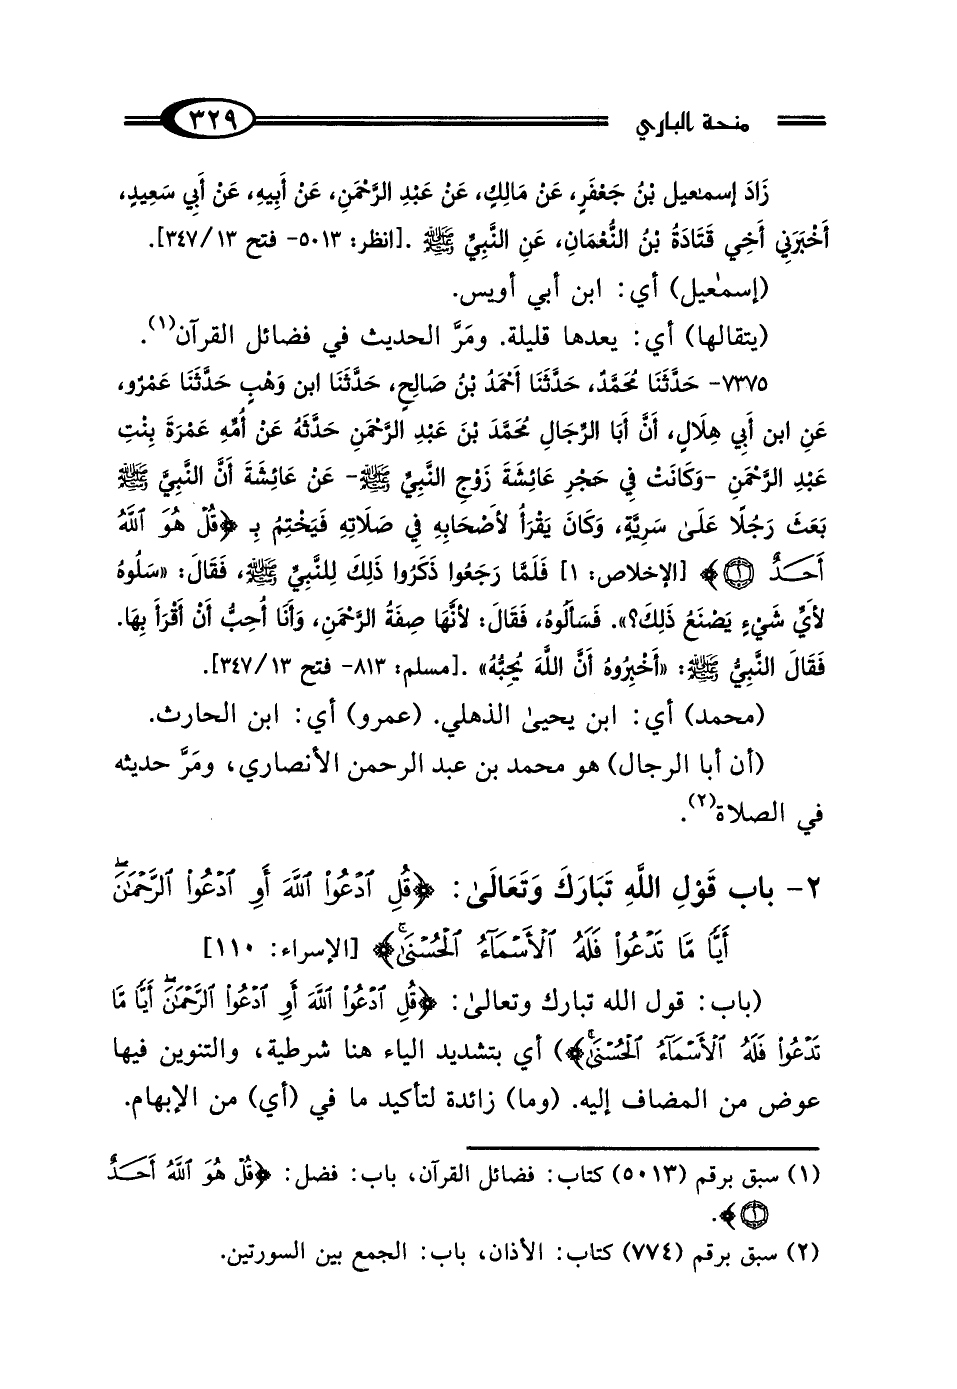 منحة الباري ٣٢٩
زَادَ إسمٰعيل بْنُ جَعْفَرٍ، عَنْ مَالِكٍ، عَنْ عَبْدِ الرَّحْمَنِ، عَنْ أَبِيهِ، عَنْ أَبِي سَعِيدٍ،
أَخْبَرَنِي أَخِي قَتَادَةُ بْنُ النُّعْمَانِ، عَنِ النَّبِيِّ ﷺ .[انظر: ٥٠١٣- فتح ١٣/ ٣٤٧].
(إسمٰعيل) أي: ابن أبي أويس.
(يتقالها) أي: يعدها قليلة. ومَرَّ الحديث في فضائل القرآن(١).
٧٣٧٥- حَدَّثَنَا مُحَمَّدٌ، حَدَّثَنَا أَحْمَدُ بْنُ صَالِحٍ، حَدَّثَنَا ابن وَهْبٍ حَدَّثَنَا عَمْرٌو،
عَنِ ابن أَبِي هِلَالٍ، أَنَّ أَبَا الرِّجَالِ مُحَمَّدَ بْنَ عَبْدِ الرَّحْمَنِ حَدَّثَهُ عَنْ أُمِّهِ عَمْرَةَ بِنْتِ
عَبْدِ الرَّحْمَنِ -وَكَانَتْ فِي حَجْرِ عَائِشَةَ زَوْجِ النَّبِيِّ ﷺ- عَنْ عَائِشَةَ أَنَّ النَّبِيَّ ﷺ
بَعَثَ رَجُلًا عَلَىٰ سَرِيَّةٍ، وَكَانَ يَقْرَأُ لأَصْحَابِهِ فِي صَلَاتِهِ فَيَخْتِمُ بِـ ﴿قُلْ هُوَ ٱللَّهُ
أَحَـدٌ ۝١﴾ [الإخلاص: ١] فَلَمَّا رَجَعُوا ذَكَرُوا ذَلِكَ لِلنَّبِيِّ ﷺ، فَقَالَ: «سَلُوهُ
لأَيِّ شَيْءٍ يَصْنَعُ ذَلِكَ؟». فَسَأَلُوهُ، فَقَالَ: لأَنَّهَا صِفَةُ الرَّحْمَنِ، وَأَنَا أُحِبُّ أَنْ أَقْرَأَ بِهَا.
فَقَالَ النَّبِيُّ ﷺ: «أَخْبِرُوهُ أَنَّ اللَّهَ يُحِبُّهُ» .[مسلم: ٨١٣- فتح ١٣/ ٣٤٧].
(محمد) أي: ابن يحيىٰ الذهلي. (عمرو) أي: ابن الحارث.
(أن أبا الرجال) هو محمد بن عبد الرحمن الأنصاري، ومَرَّ حديثه
في الصلاة(٢).
٢- باب قَوْلِ اللَّهِ تَبَارَكَ وَتَعَالَىٰ: ﴿قُلِ ٱدْعُواْ ٱللَّهَ أَوِ ٱدْعُواْ ٱلرَّحْمَٰنَۖ
أَيًّا مَّا تَدْعُواْ فَلَهُ ٱلْأَسْمَآءُ ٱلْحُسْنَىٰۚ﴾ [الإسراء: ١١٠]
(باب: قول الله تبارك وتعالىٰ: ﴿قُلِ ٱدْعُواْ ٱللَّهَ أَوِ ٱدْعُواْ ٱلرَّحْمَٰنَۖ أَيًّا مَّا
تَدْعُواْ فَلَهُ ٱلْأَسْمَآءُ ٱلْحُسْنَىٰۚ﴾) أي بتشديد الياء هنا شرطية، والتنوين فيها
عوض من المضاف إليه. (وما) زائدة لتأكيد ما في (أي) من الإبهام.
(١) سبق برقم (٥٠١٣) كتاب: فضائل القرآن، باب: فضل: ﴿قُلْ هُوَ ٱللَّهُ أَحَـدٌ
۝١﴾.
(٢) سبق برقم (٧٧٤) كتاب: الأذان، باب: الجمع بين السورتين.